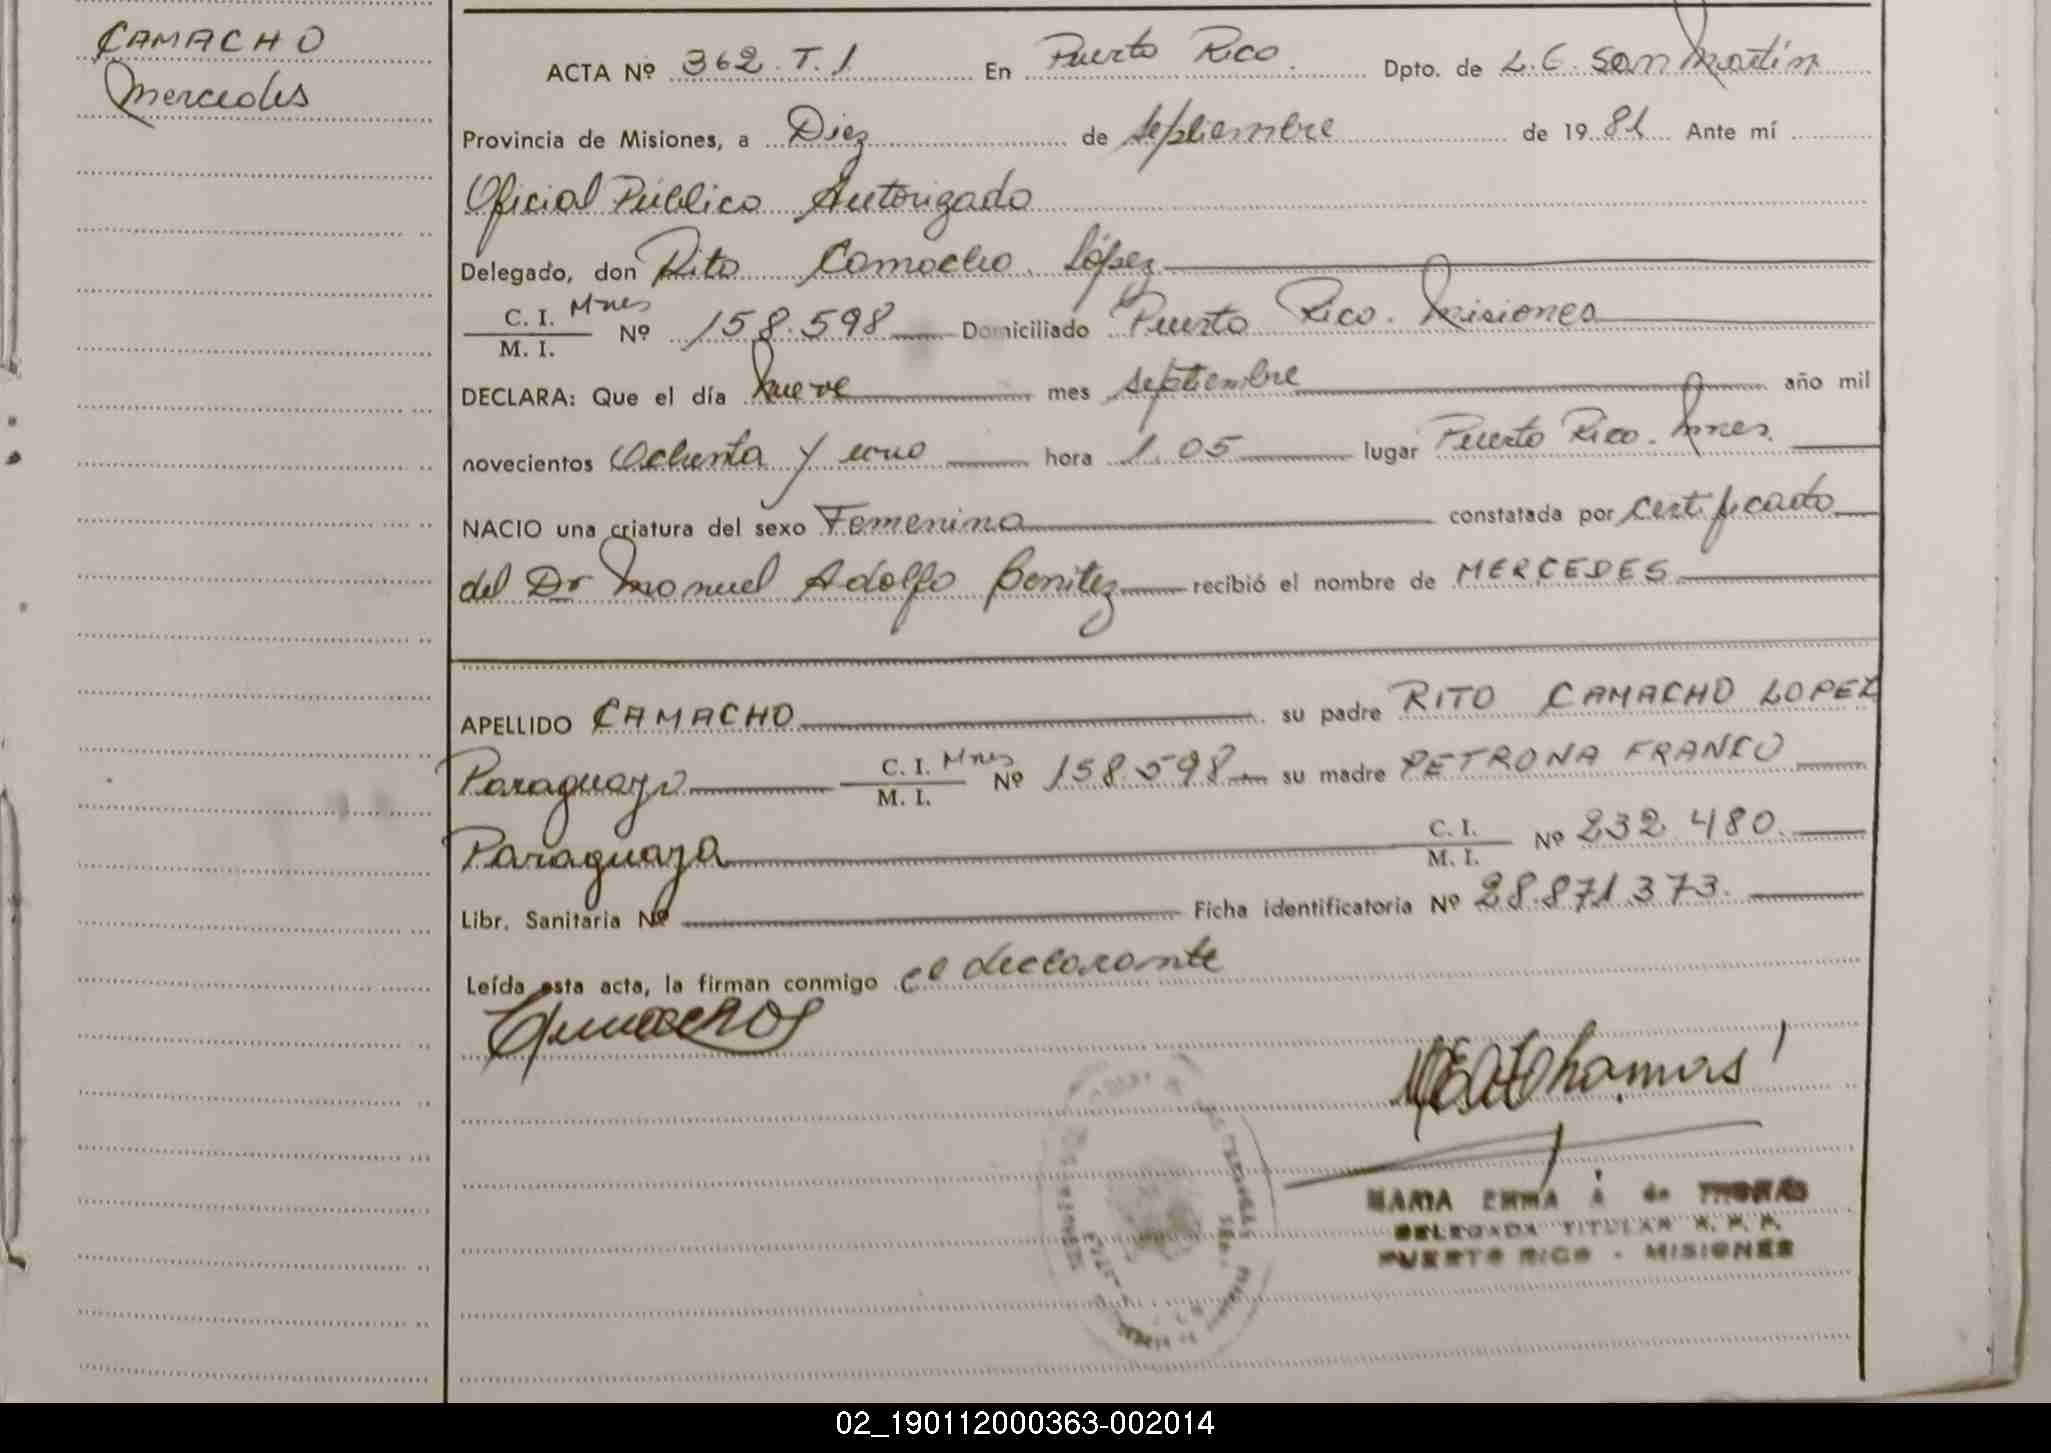 CAMACHO
Mercedes
ACTA Nº 362. T. 1 En Puerto Rico. Dpto. de L. G. San Martín
Provincia de Misiones, a Diez de septiembre de 1981 Ante mí
Oficial Público Autorizado
Delegado, don Rito Camacho López
C. I. Mnes
M. I. Nº 158.598 Domiciliado Puerto Rico. Misiones
DECLARA: Que el día nueve mes septiembre año mil
novecientos Ochenta y uno hora 1.05 lugar Puerto Rico. Mnes.
NACIO una criatura del sexo Femenino constatada por certificado
del Dr Manuel Adolfo Benitez recibió el nombre de MERCEDES
APELLIDO CAMACHO su padre RITO CAMACHO LOPEZ
Paraguayo C. I. Mnes M. I. Nº 158.598 su madre PETRONA FRANCO
Paraguaya C. I. M. I. Nº 232.480
Libr. Sanitaria Nº Ficha identificatoria Nº 28.871.373.
Leída esta acta, la firman conmigo el declarante
MARIA EMMA A de THOMAS
DELEGADA TITULAR R. P. P.
PUERTO RICO - MISIONES
02_190112000363-002014